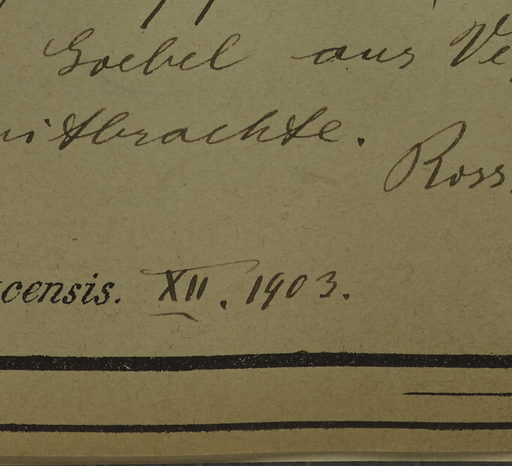 Goebel aus Ve
mitbrachte.
Ross.
censis. XII. 1903.